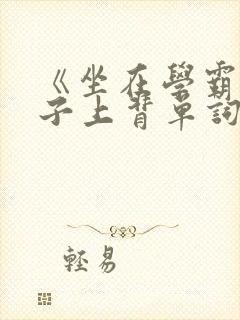 《坐在學霸
子上背單詞
輕易